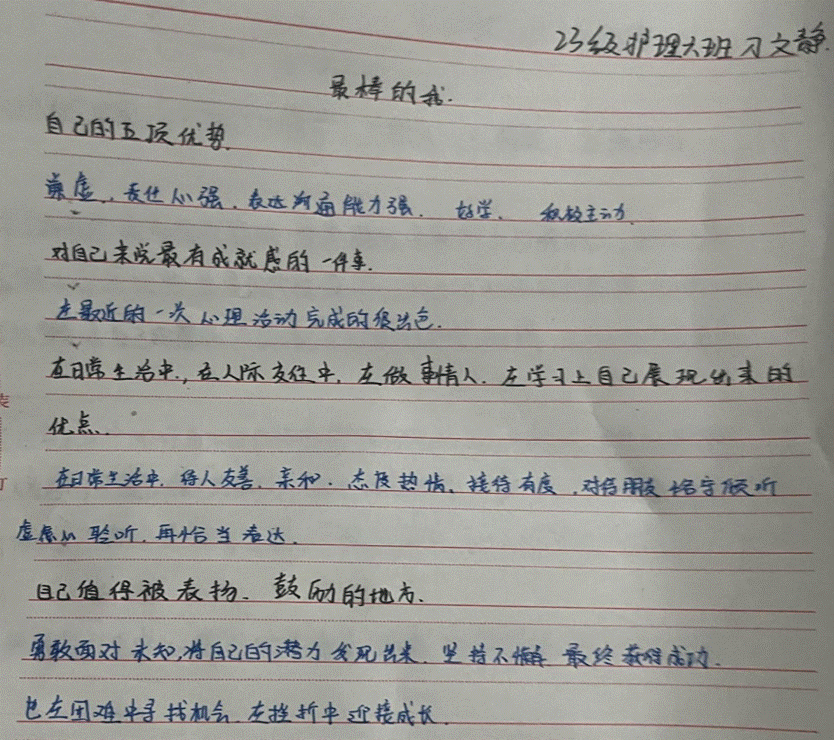 23级护理大班 刁文静
最棒的我.
自己的五项优势.
谦虚，责任心强，表达沟通能力强， 好学， 积极主动.
对自己来说最有成就感的一件事.
在最近的一次心理活动完成的很出色.
在日常生活中，在人际交往中，在做事情人，在学习上自己展现出来的
优点.
在日常生活中，待人友善，亲和，态度热情，接待有度，对待朋友 倾听
虚心聆听，再恰当表达.
自己值得被表扬、鼓励的地方.
勇敢面对未知，将自己的潜力发现出来，坚持不懈 最终获得成功.
在困难中寻找机会，在挫折中迎接成长.